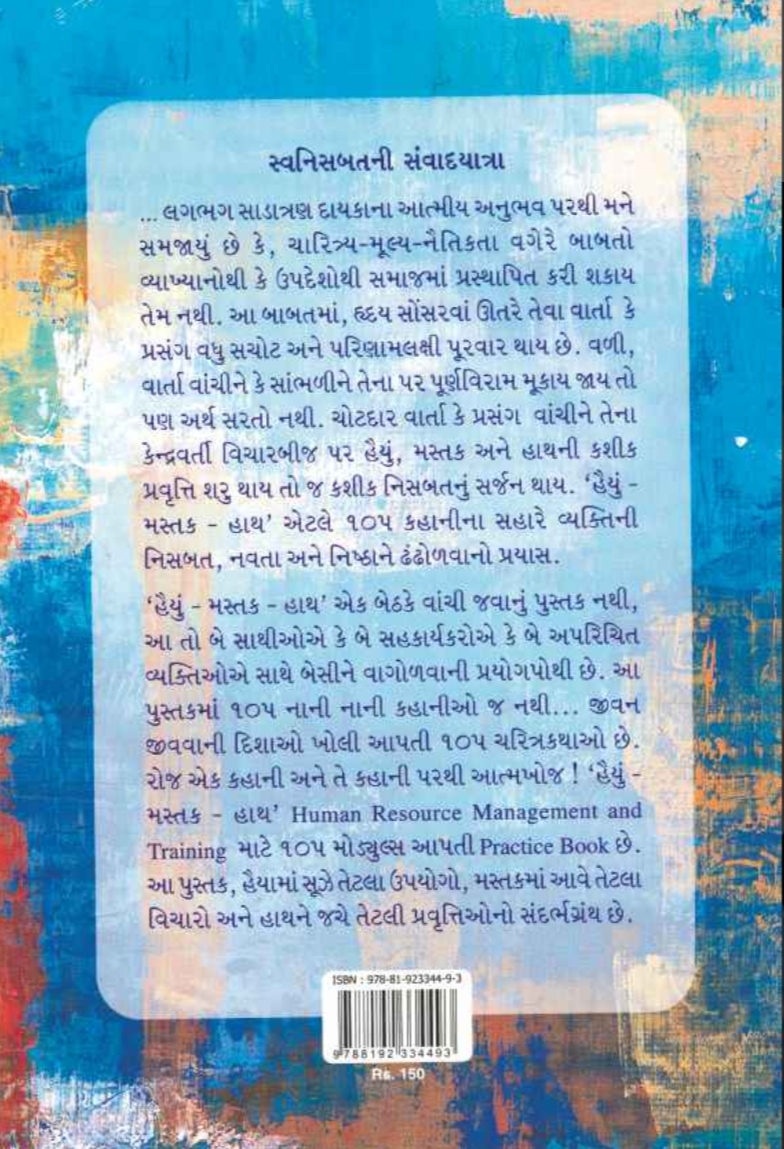 સ્વનિસબતની સંવાદયાત્રા
... લગભગ સાડાત્રણ દાયકાના આત્મીય અનુભવ પરથી મને
સમજાયું છે કે, ચારિત્ર્ય-મૂલ્ય-નૈતિકતા વગેરે બાબતો
વ્યાખ્યાનોથી કે ઉપદેશોથી સમાજમાં પ્રસ્થાપિત કરી શકાય
તેમ નથી. આ બાબતમાં, હૃદય સોંસરવાં ઊતરે તેવા વાર્તા કે
પ્રસંગ વધુ સચોટ અને પરિણામલક્ષી પૂરવાર થાય છે. વળી,
વાર્તા વાંચીને કે સાંભળીને તેના પર પૂર્ણવિરામ મૂકાય જાય તો
પણ અર્થ સરતો નથી. ચોટદાર વાર્તા કે પ્રસંગ વાંચીને તેના
કેન્દ્રવર્તી વિચારબીજ પર હૈયું, મસ્તક અને હાથની કશીક
પ્રવૃત્તિ શરુ થાય તો જ કશીક નિસબતનું સર્જન થાય. ‘હૈયું -
મસ્તક - હાથ’ એટલે ૧૦૫ કહાનીના સહારે વ્યક્તિની
નિસબત, નવતા અને નિષ્ઠાને ઢંઢોળવાનો પ્રયાસ.
‘હૈયું - મસ્તક - હાથ’ એક બેઠકે વાંચી જવાનું પુસ્તક નથી,
આ તો બે સાથીઓએ કે બે સહકાર્યકરોએ કે બે અપરિચિત
વ્યક્તિઓએ સાથે બેસીને વાગોળવાની પ્રયોગપોથી છે. આ
પુસ્તકમાં ૧૦૫ નાની નાની કહાનીઓ જ નથી... જીવન
જીવવાની દિશાઓ ખોલી આપતી ૧૦૫ ચરિત્રકથાઓ છે.
રોજ એક કહાની અને તે કહાની પરથી આત્મખોજ ! ‘હૈયું -
મસ્તક - હાથ’ Human Resource Management and
Training માટે ૧૦૫ મોડ્યુલ્સ આપતી Practice Book છે.
આ પુસ્તક, હૈયામાં સૂઝે તેટલા ઉપયોગો, મસ્તકમાં આવે તેટલા
વિચારો અને હાથને જચે તેટલી પ્રવૃત્તિઓનો સંદર્ભગ્રંથ છે.
ISBN : 978-81-923344-9-3
9 788192 334493
Rs. 150